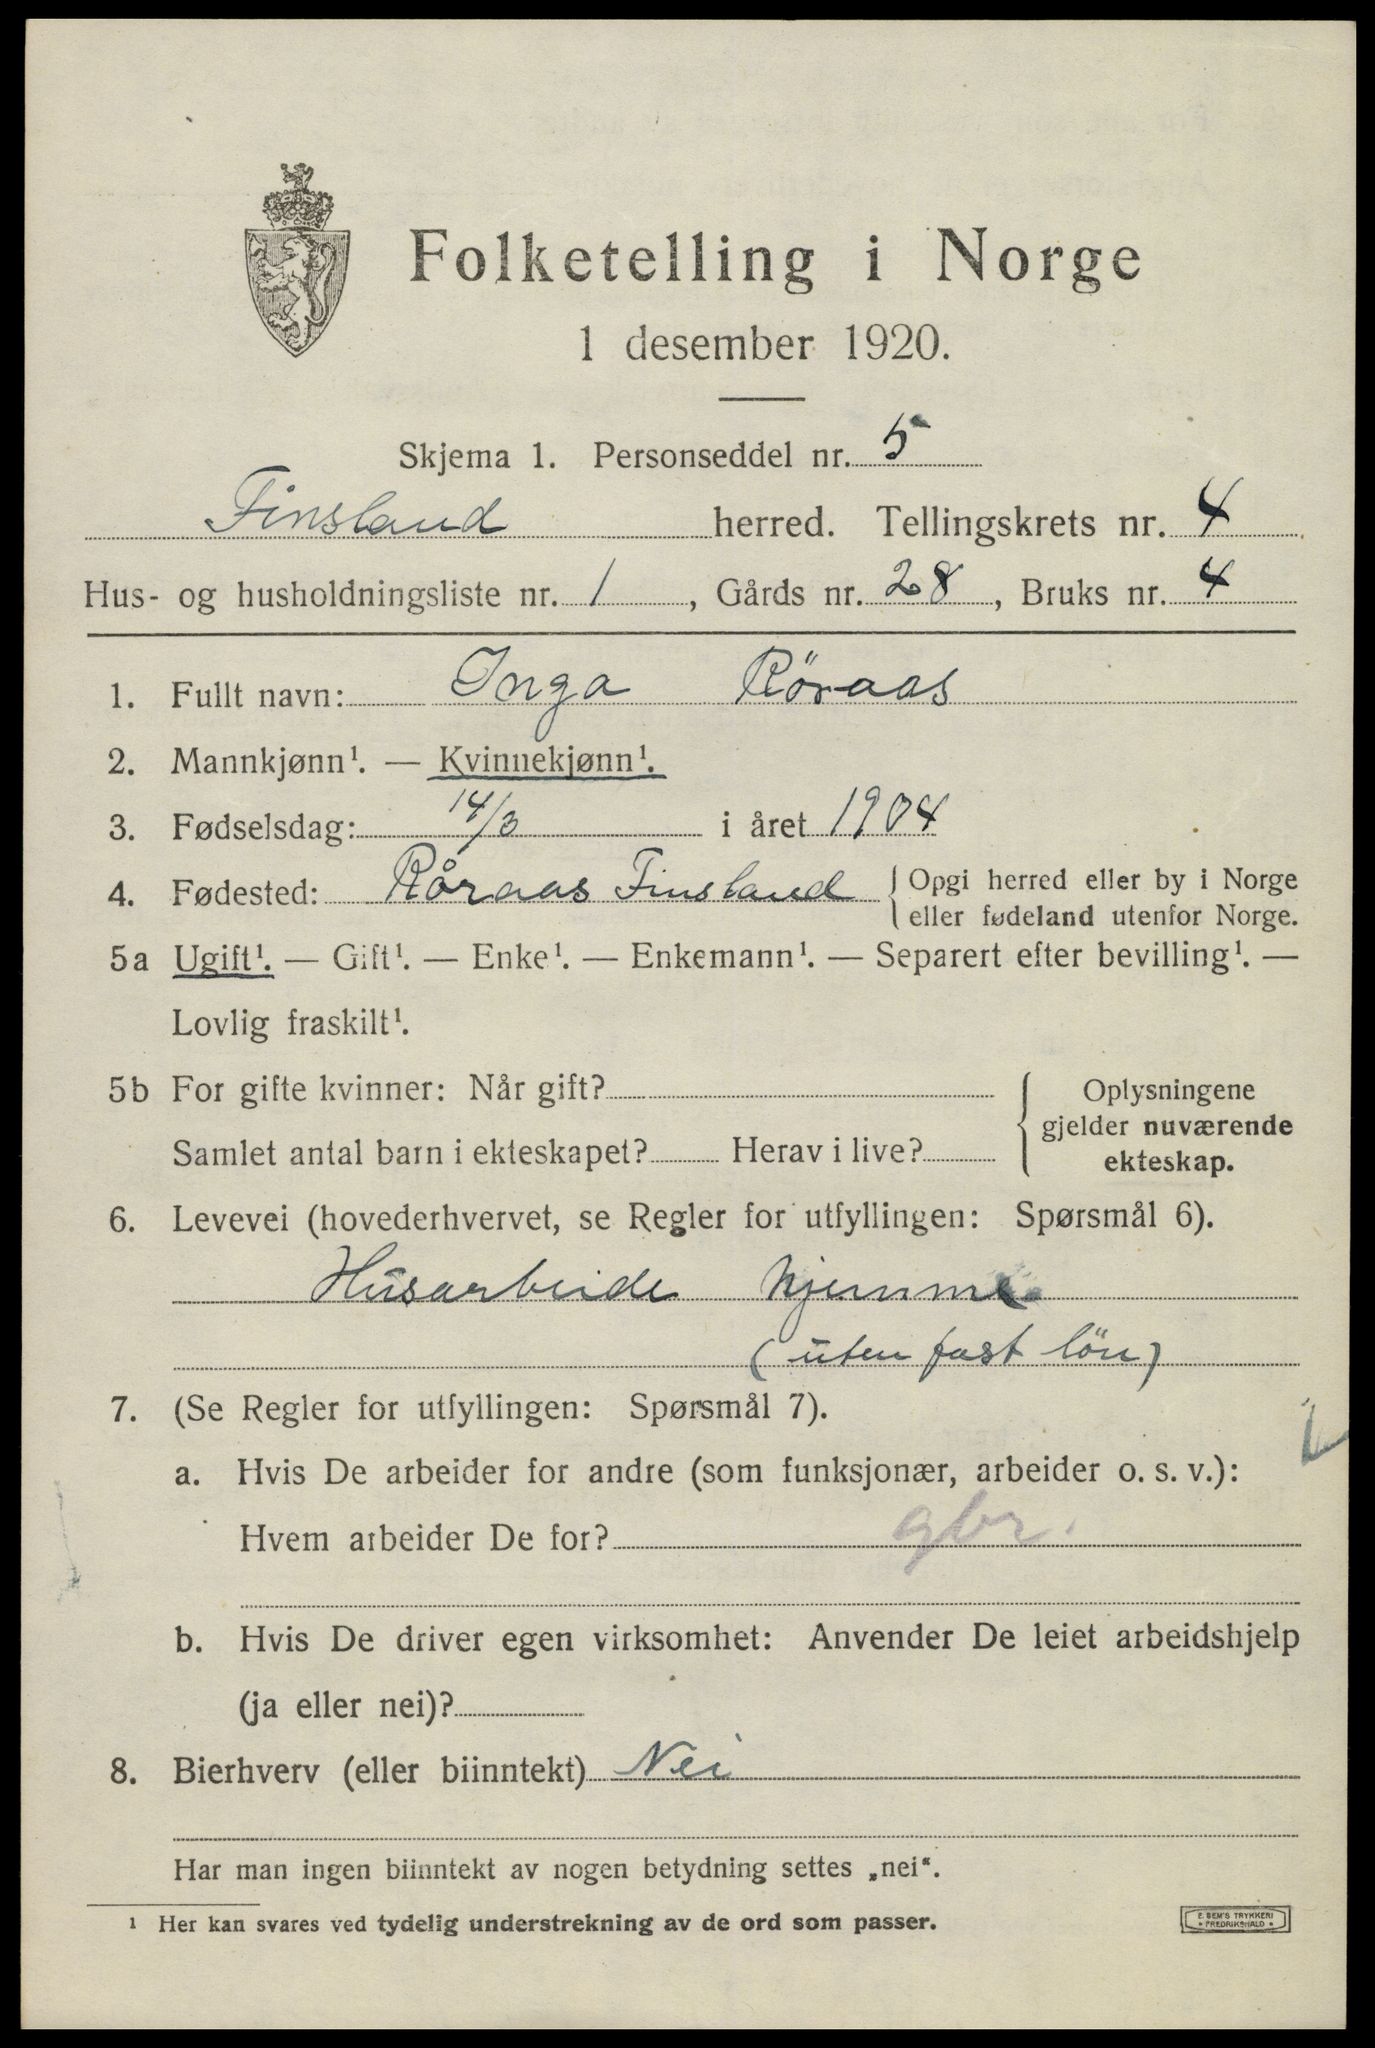 Folketelling i Norge
1 desember 1920.
Skjema 1. Personseddel nr. 5
Finsland herred. Tellingskrets nr. 4
Hus- og husholdningsliste nr. 1, Gårds nr. 28, Bruks nr. 4
1. Fullt navn: Inga Röraas
2. Mannkjønn¹. — Kvinnekjønn¹.
3. Fødselsdag: 14/3 i året 1904
4. Fødested: Röraas Finsland { Opgi herred eller by i Norge
eller fødeland utenfor Norge.
5a Ugift¹. — Gift¹. — Enke¹. — Enkemann¹. — Separert efter bevilling¹. —
Lovlig fraskilt¹.
5b For gifte kvinner: Når gift?
Samlet antal barn i ekteskapet? Herav i live?
{ Oplysningene
gjelder nuværende
ekteskap.
6. Levevei (hovederhvervet, se Regler for utfyllingen: Spørsmål 6).
Husarbeide hjemme
(uten fast lön)
7. (Se Regler for utfyllingen: Spørsmål 7).
a. Hvis De arbeider for andre (som funksjonær, arbeider o. s. v.):
Hvem arbeider De for? gbr.
b. Hvis De driver egen virksomhet: Anvender De leiet arbeidshjelp
(ja eller nei)?
8. Bierhverv (eller biinntekt) Nei
Har man ingen biinntekt av nogen betydning settes „nei“.
¹ Her kan svares ved tydelig understrekning av de ord som passer.
E. SEM'S TRYKKERI
• FREDRIKSHALD •